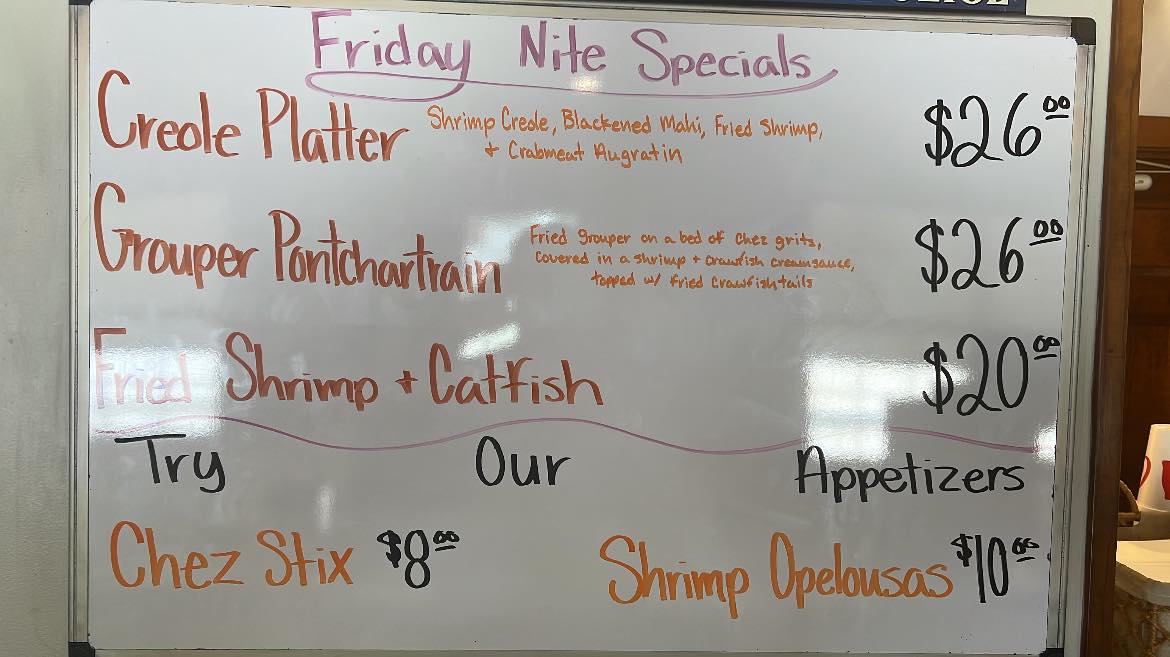 Friday Nite Specials
Creole Platter Shrimp Creole, Blackened Mahi, Fried Shrimp, $26.00
+ Crabmeat Augratin
Grouper Pontchartrain Fried grouper on a bed of Chez grits, $26.00
covered in a shrimp + crawfish creamsauce,
topped w/ fried crawfish tails
Fried Shrimp + Catfish $20.00
Try Our Appetizers
Chez Stix $8.00 Shrimp Opelousas $10.00